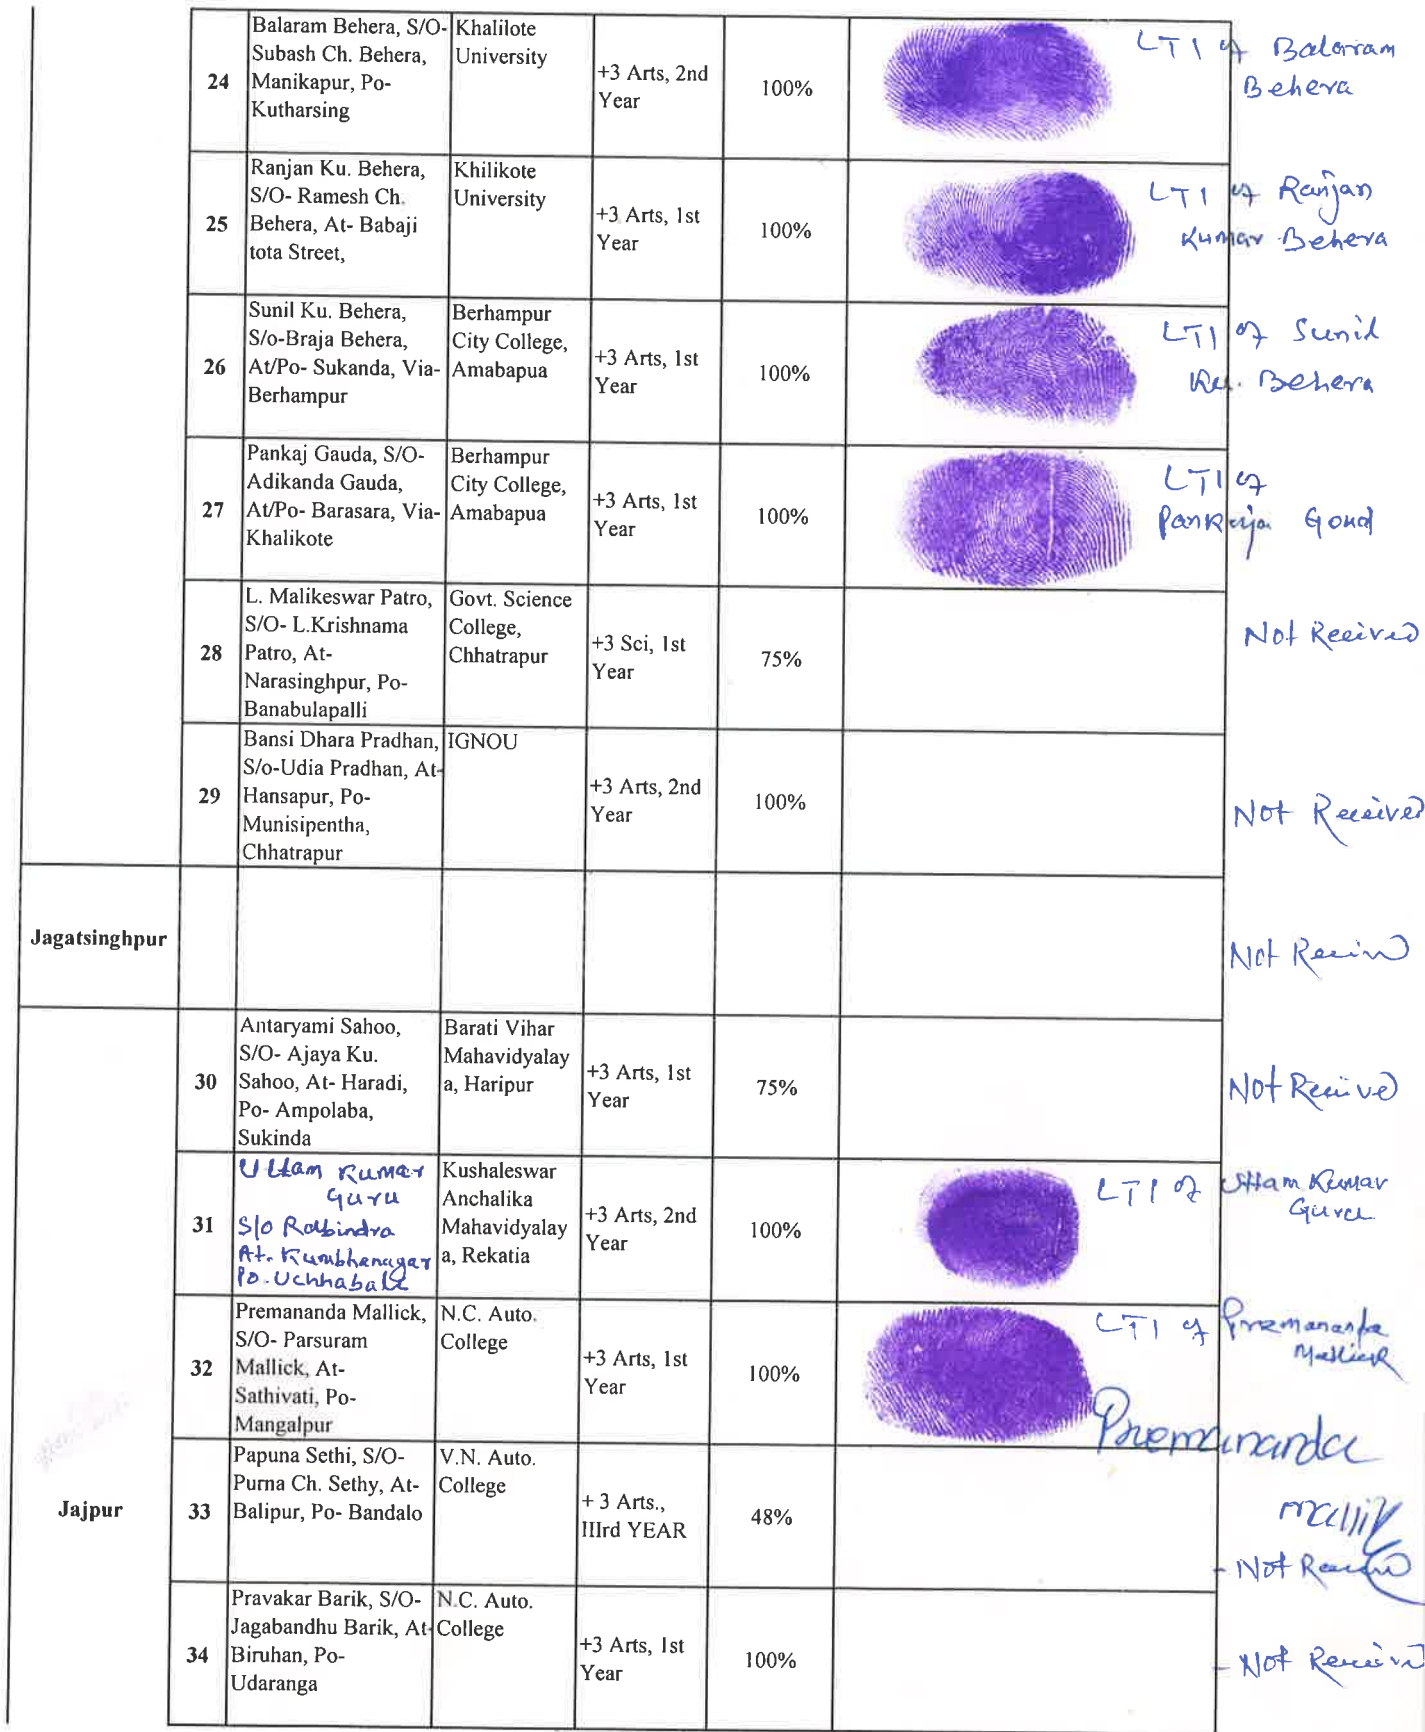 24
Balaram Behera, S/O-
Subash Ch. Behera,
Manikapur, Po-
Kutharsing
Khalilote
University
+3 Arts, 2nd
Year
100%
LTI of Balaram
Behera
25
Ranjan Ku. Behera,
S/O- Ramesh Ch.
Behera, At- Babaji
tota Street,
Khilikote
University
+3 Arts, 1st
Year
100%
LTI of Ranjan
Kumar Behera
26
Sunil Ku. Behera,
S/o-Braja Behera,
At/Po- Sukanda, Via-
Berhampur
Berhampur
City College,
Amabapua
+3 Arts, 1st
Year
100%
LTI of Sunil
Ku. Behera
27
Pankaj Gauda, S/O-
Adikanda Gauda,
At/Po- Barasara, Via-
Khalikote
Berhampur
City College,
Amabapua
+3 Arts, 1st
Year
100%
LTI of
Pankaja Goud
28
L. Malikeswar Patro,
S/O- L.Krishnama
Patro, At-
Narasinghpur, Po-
Banabulapalli
Govt. Science
College,
Chhatrapur
+3 Sci, 1st
Year
75%
Not Received
29
Bansi Dhara Pradhan,
S/o-Udia Pradhan, At-
Hansapur, Po-
Munisipentha,
Chhatrapur
IGNOU
+3 Arts, 2nd
Year
100%
Not Received
Jagatsinghpur
Not
Jajpur
30
Antaryami Sahoo,
S/O- Ajaya Ku.
Sahoo, At- Haradi,
Po- Ampolaba,
Sukinda
Barati Vihar
Mahavidyalay
a, Haripur
+3 Arts, 1st
Year
75%
Not Received
31
Uttam Kumar
Guru
S/o Rabindra
At. Kumbhanagar
Po. Uchhabali
Kushaleswar
Anchalika
Mahavidyalay
a, Rekatia
+3 Arts, 2nd
Year
100%
LTI of Uttam Kumar
Guru
32
Premananda Mallick,
S/O- Parsuram
Mallick, At-
Sathivati, Po-
Mangalpur
N.C. Auto.
College
+3 Arts, 1st
Year
100%
LTI of Premananda
Mallick
Premananda
Mallik
33
Papuna Sethi, S/O-
Purna Ch. Sethy, At-
Balipur, Po- Bandalo
V.N. Auto.
College
+ 3 Arts.,
IIIrd YEAR
48%
- Not
34
Pravakar Barik, S/O-
Jagabandhu Barik, At-
Biruhan, Po-
Udaranga
N.C. Auto.
College
+3 Arts, 1st
Year
100%
- Not Received